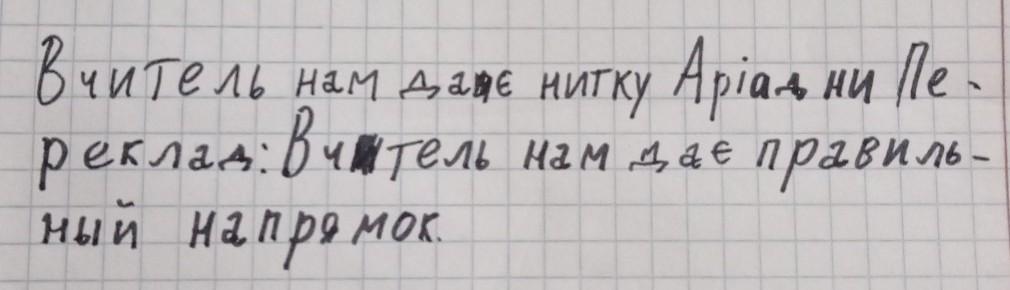 Вчитель нам дає нитку Аріадни Пе-
реклад: Вчитель нам дає правиль-
ный напрямок.